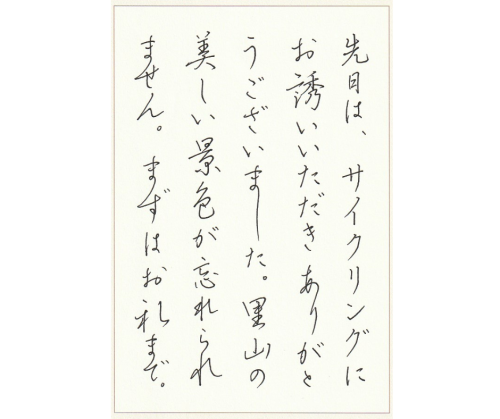 先日は、サイクリングに
お誘いいただきありがと
うございました。里山の
美しい景色が忘れられ
ません。まずはお礼まで。